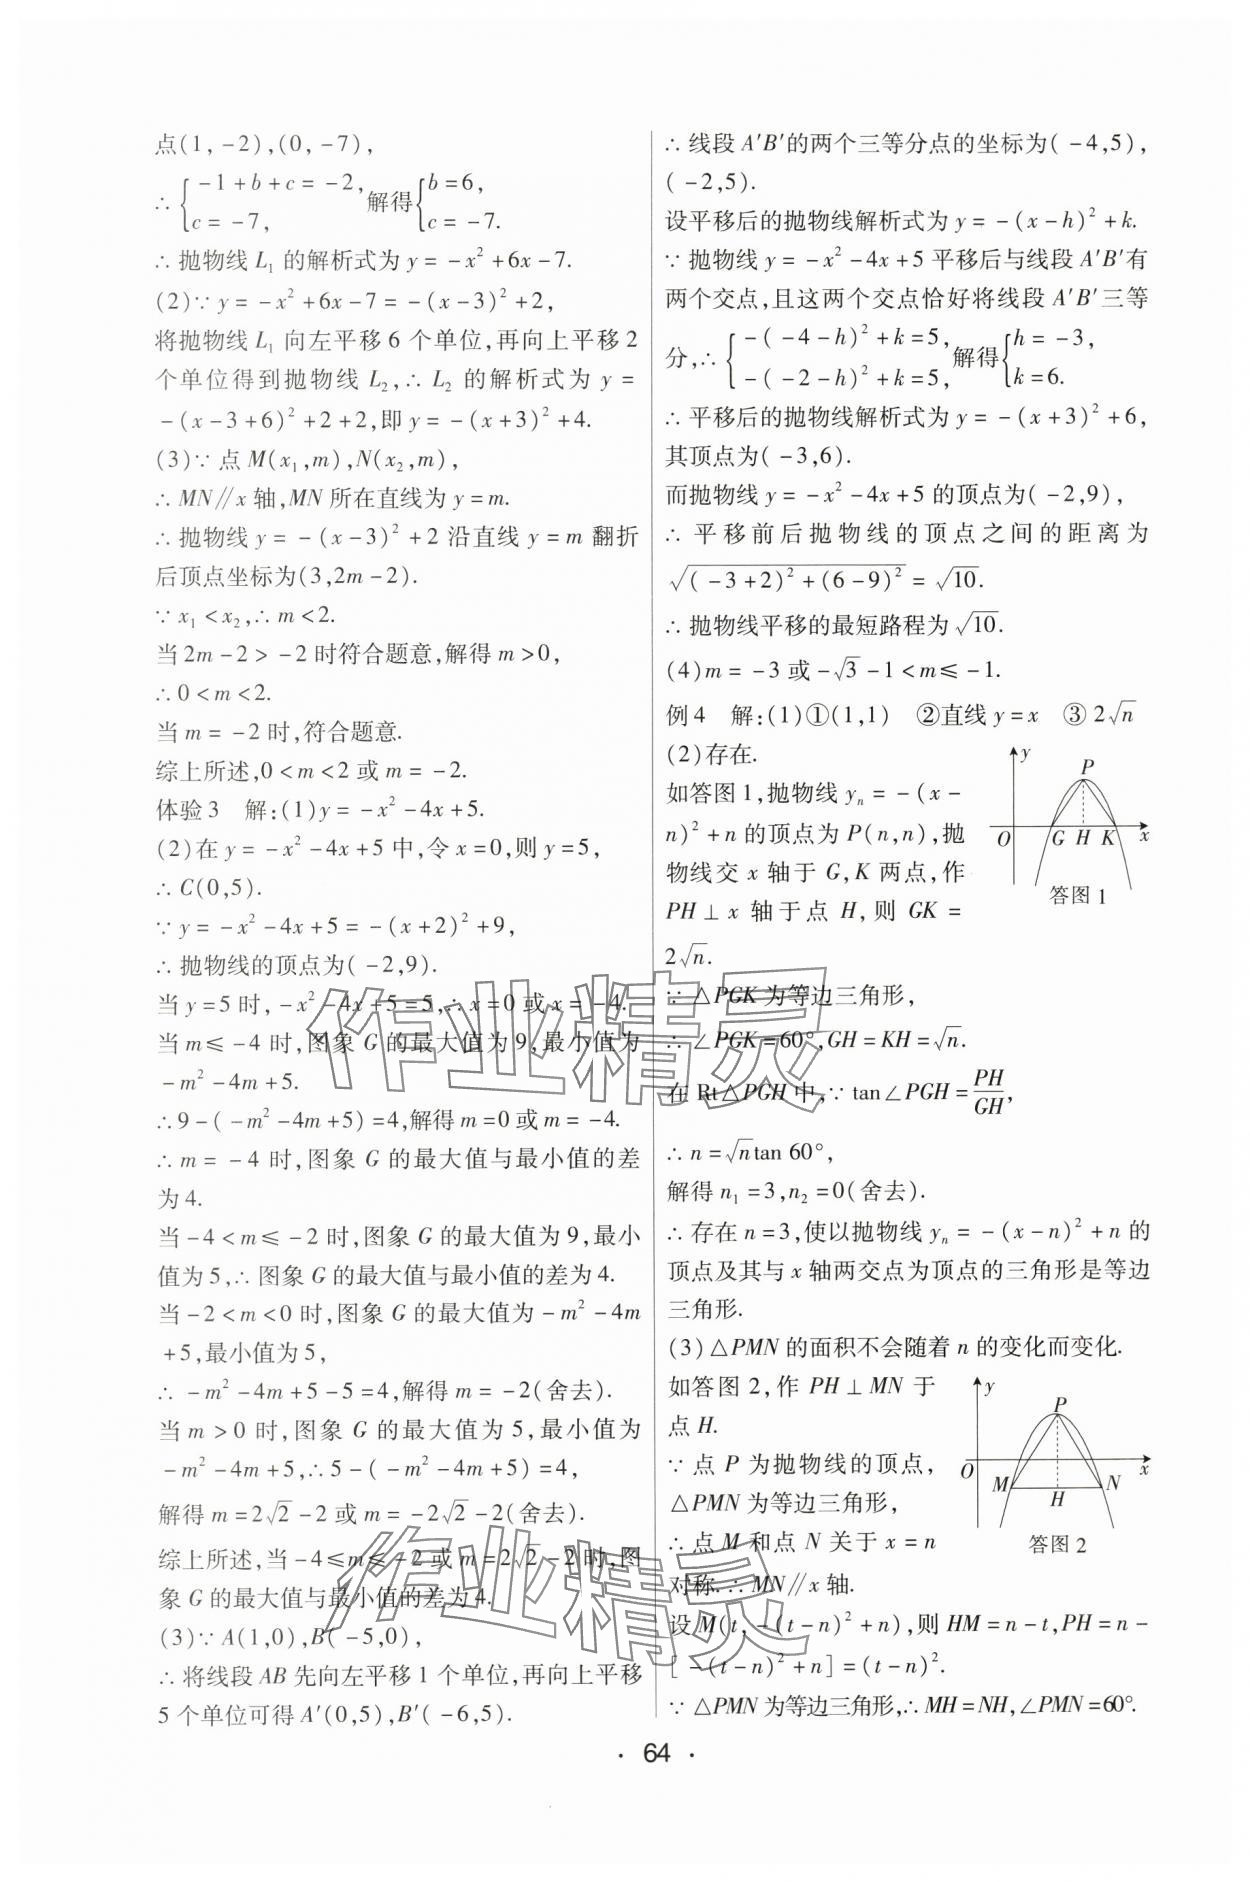 点(1,-2),(0,-7),
∴ {-1+b+c=-2, c=-7, 解得{b=6, c=-7.
∴ 抛物线 L₁ 的解析式为 y=-x²+6x-7.
(2)∵ y=-x²+6x-7=-(x-3)²+2,
将抛物线 L₁ 向左平移 6 个单位,再向上平移 2
个单位得到抛物线 L₂,∴ L₂ 的解析式为 y=
-(x-3+6)²+2+2,即 y=-(x+3)²+4.
(3)∵ 点 M(x₁,m),N(x₂,m),
∴ MN∥x 轴,MN 所在直线为 y=m.
∴ 抛物线 y=-(x-3)²+2 沿直线 y=m 翻折
后顶点坐标为(3,2m-2).
∵ x₁<x₂,∴ m<2.
当 2m-2>-2 时符合题意,解得 m>0,
∴ 0<m<2.
当 m=-2 时,符合题意.
综上所述,0<m<2 或 m=-2.
体验3 解:(1)y=-x²-4x+5.
(2)在 y=-x²-4x+5 中,令 x=0,则 y=5,
∴ C(0,5).
∵ y=-x²-4x+5=-(x+2)²+9,
∴ 抛物线的顶点为(-2,9).
当 y=5 时,-x²-4x+5=5,∴ x=0 或 x=-4.
当 m≤-4 时,图象 G 的最大值为 9,最小值为
-m²-4m+5.
∴ 9-(-m²-4m+5)=4,解得 m=0 或 m=-4.
∴ m=-4 时,图象 G 的最大值与最小值的差
为 4.
当 -4<m≤-2 时,图象 G 的最大值为 9,最小
值为 5,∴ 图象 G 的最大值与最小值的差为 4.
当 -2<m<0 时,图象 G 的最大值为 -m²-4m
+5,最小值为 5,
∴ -m²-4m+5-5=4,解得 m=-2(舍去).
当 m>0 时,图象 G 的最大值为 5,最小值为
-m²-4m+5,∴ 5-(-m²-4m+5)=4,
解得 m=2√2-2 或 m=-2√2-2(舍去).
综上所述,当 -4≤m≤-2 或 m=2√2-2 时,图
象 G 的最大值与最小值的差为 4.
(3)∵ A(1,0),B(-5,0),
∴ 将线段 AB 先向左平移 1 个单位,再向上平移
5 个单位可得 A′(0,5),B′(-6,5).
∴ 线段 A′B′的两个三等分点的坐标为(-4,5),
(-2,5).
设平移后的抛物线解析式为 y=-(x-h)²+k.
∵ 抛物线 y=-x²-4x+5 平移后与线段 A′B′有
两个交点,且这两个交点恰好将线段 A′B′三等
分,∴ {-(-4-h)²+k=5, -(-2-h)²+k=5, 解得{h=-3, k=6.
∴ 平移后的抛物线解析式为 y=-(x+3)²+6,
其顶点为(-3,6).
而抛物线 y=-x²-4x+5 的顶点为(-2,9),
∴ 平移前后抛物线的顶点之间的距离为
√((-3+2)²+(6-9)²)=√10.
∴ 抛物线平移的最短路程为√10.
(4)m=-3 或 -√3-1<m≤-1.
例4 解:(1)①(1,1) ②直线 y=x ③2√n
(2)存在.
如答图 1,抛物线 yₙ=-(x-
n)²+n 的顶点为 P(n,n),抛
物线交 x 轴于 G,K 两点,作
PH⊥x 轴于点 H,则 GK=
2√n.
y
P
O G H K x
答图 1
∵ △PGK 为等边三角形,
∴ ∠PGK=60°,GH=KH=√n.
在 Rt△PGH 中,∵ tan∠PGH=PH/GH,
∴ n=√n tan 60°,
解得 n₁=3,n₂=0(舍去).
∴ 存在 n=3,使以抛物线 yₙ=-(x-n)²+n 的
顶点及其与 x 轴两交点为顶点的三角形是等边
三角形.
(3)△PMN 的面积不会随着 n 的变化而变化.
如答图 2,作 PH⊥MN 于
点 H.
∵ 点 P 为抛物线的顶点,
△PMN 为等边三角形,
∴ 点 M 和点 N 关于 x=n
对称.∴ MN∥x 轴.
y
P
O x
M H N
答图 2
设 M(t,-(t-n)²+n),则 HM=n-t,PH=n-
[-(t-n)²+n]=(t-n)².
∵ △PMN 为等边三角形,∴ MH=NH,∠PMN=60°.
· 64 ·
作业精灵
作业精灵